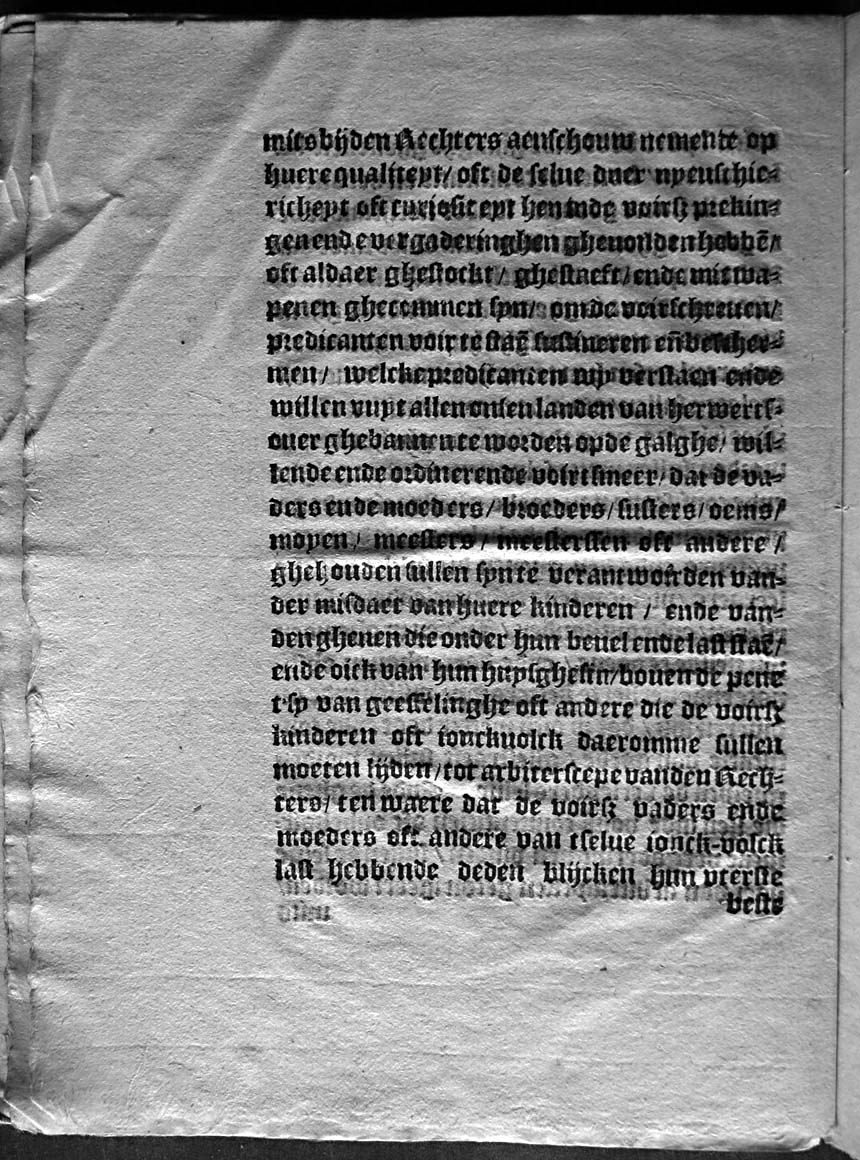 mits bijden Rechters aenschouw nemende op
huere qualiteyt/ oft de selue duer nyeuschie-
richeyt oft curiositeyt hen inde voirsz prekin-
gen ende vergaderinghen gheuonden hebbē/
oft aldaer ghestockt/ ghestaeft/ ende mit wa-
penen ghecommen syn/ om de voirschreuen/
predicanten voir te staē sustineren eñ bescher-
men/ welcke predicanten wy verstaen ende
willen vuyt allen onsen landen van herwerts-
ouer ghebannen te worden op de galghe/ wil-
lende ende ordinerende voirtsmeer/ dat de va-
ders ende moeders/ broeders/ susters/ oems/
moyen/ meesters/ meesterssen oft andere/
ghehouden sullen syn te verantworden van-
der misdaet van huere kinderen / ende van-
den ghenen die onder hun beuel ende last staē/
ende oick van hun huysghesin/ bouen de pene
t'sy van geesselinghe oft andere die de voirsz
kinderen oft ionckuolck daeromme sullen
moeten lijden/ tot arbitersteye vanden Rech-
ters/ ten waere dat de voirsz vaders ende
moeders oft andere van tselue ionck-volck
last hebbende deden blijcken hun vterste
beste